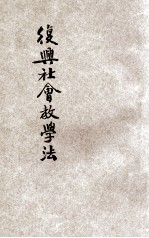 復興社會教學法